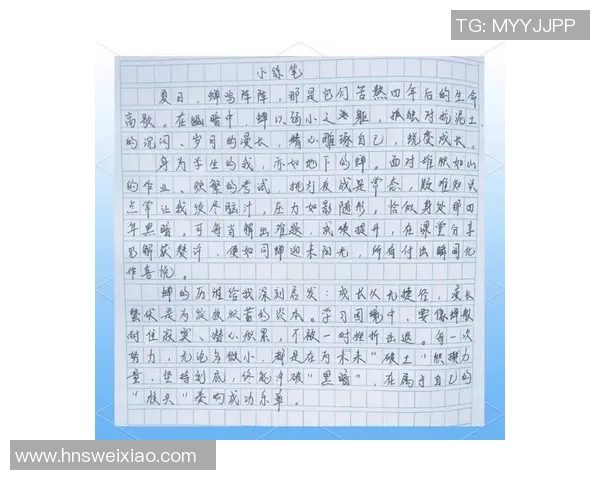 TG: MYYJJPP
小练笔
夏日，蝉鸣阵阵，那是它们苦熬四年后的生命
高歌。在幽暗中，蝉以弱小之躯，孤独对抗泥土
的沉闷、岁月的漫长，精心雕琢自己，蜕变成长。
身为学生的我，亦如地下的蝉。面对堆积如山
的作业、频繁的考试，挑灯夜战是常态，数难知识
点常让我绞尽脑汁，压力如影随形，恰似身处那四
年黑暗。可每当解出难题，成绩提升，在课堂分享
见解获赞许，便如同蝉迎来阳光，所有付出瞬间化
作喜悦。
蝉的历程给我深刻启发：成长从无捷径，漫长
蛰伏是为发放积蓄的资本。学习困境中，要像蝉般
耐住寂寞、潜心积累，不被一时挫折击退。每一次
努力，无论多微小，都是在为未来“破土”积攒力
量，坚持到底，终能冲破“黑暗”，在属于自己的
“枝头”奏响成功乐章。
www.hnsweixiao.com